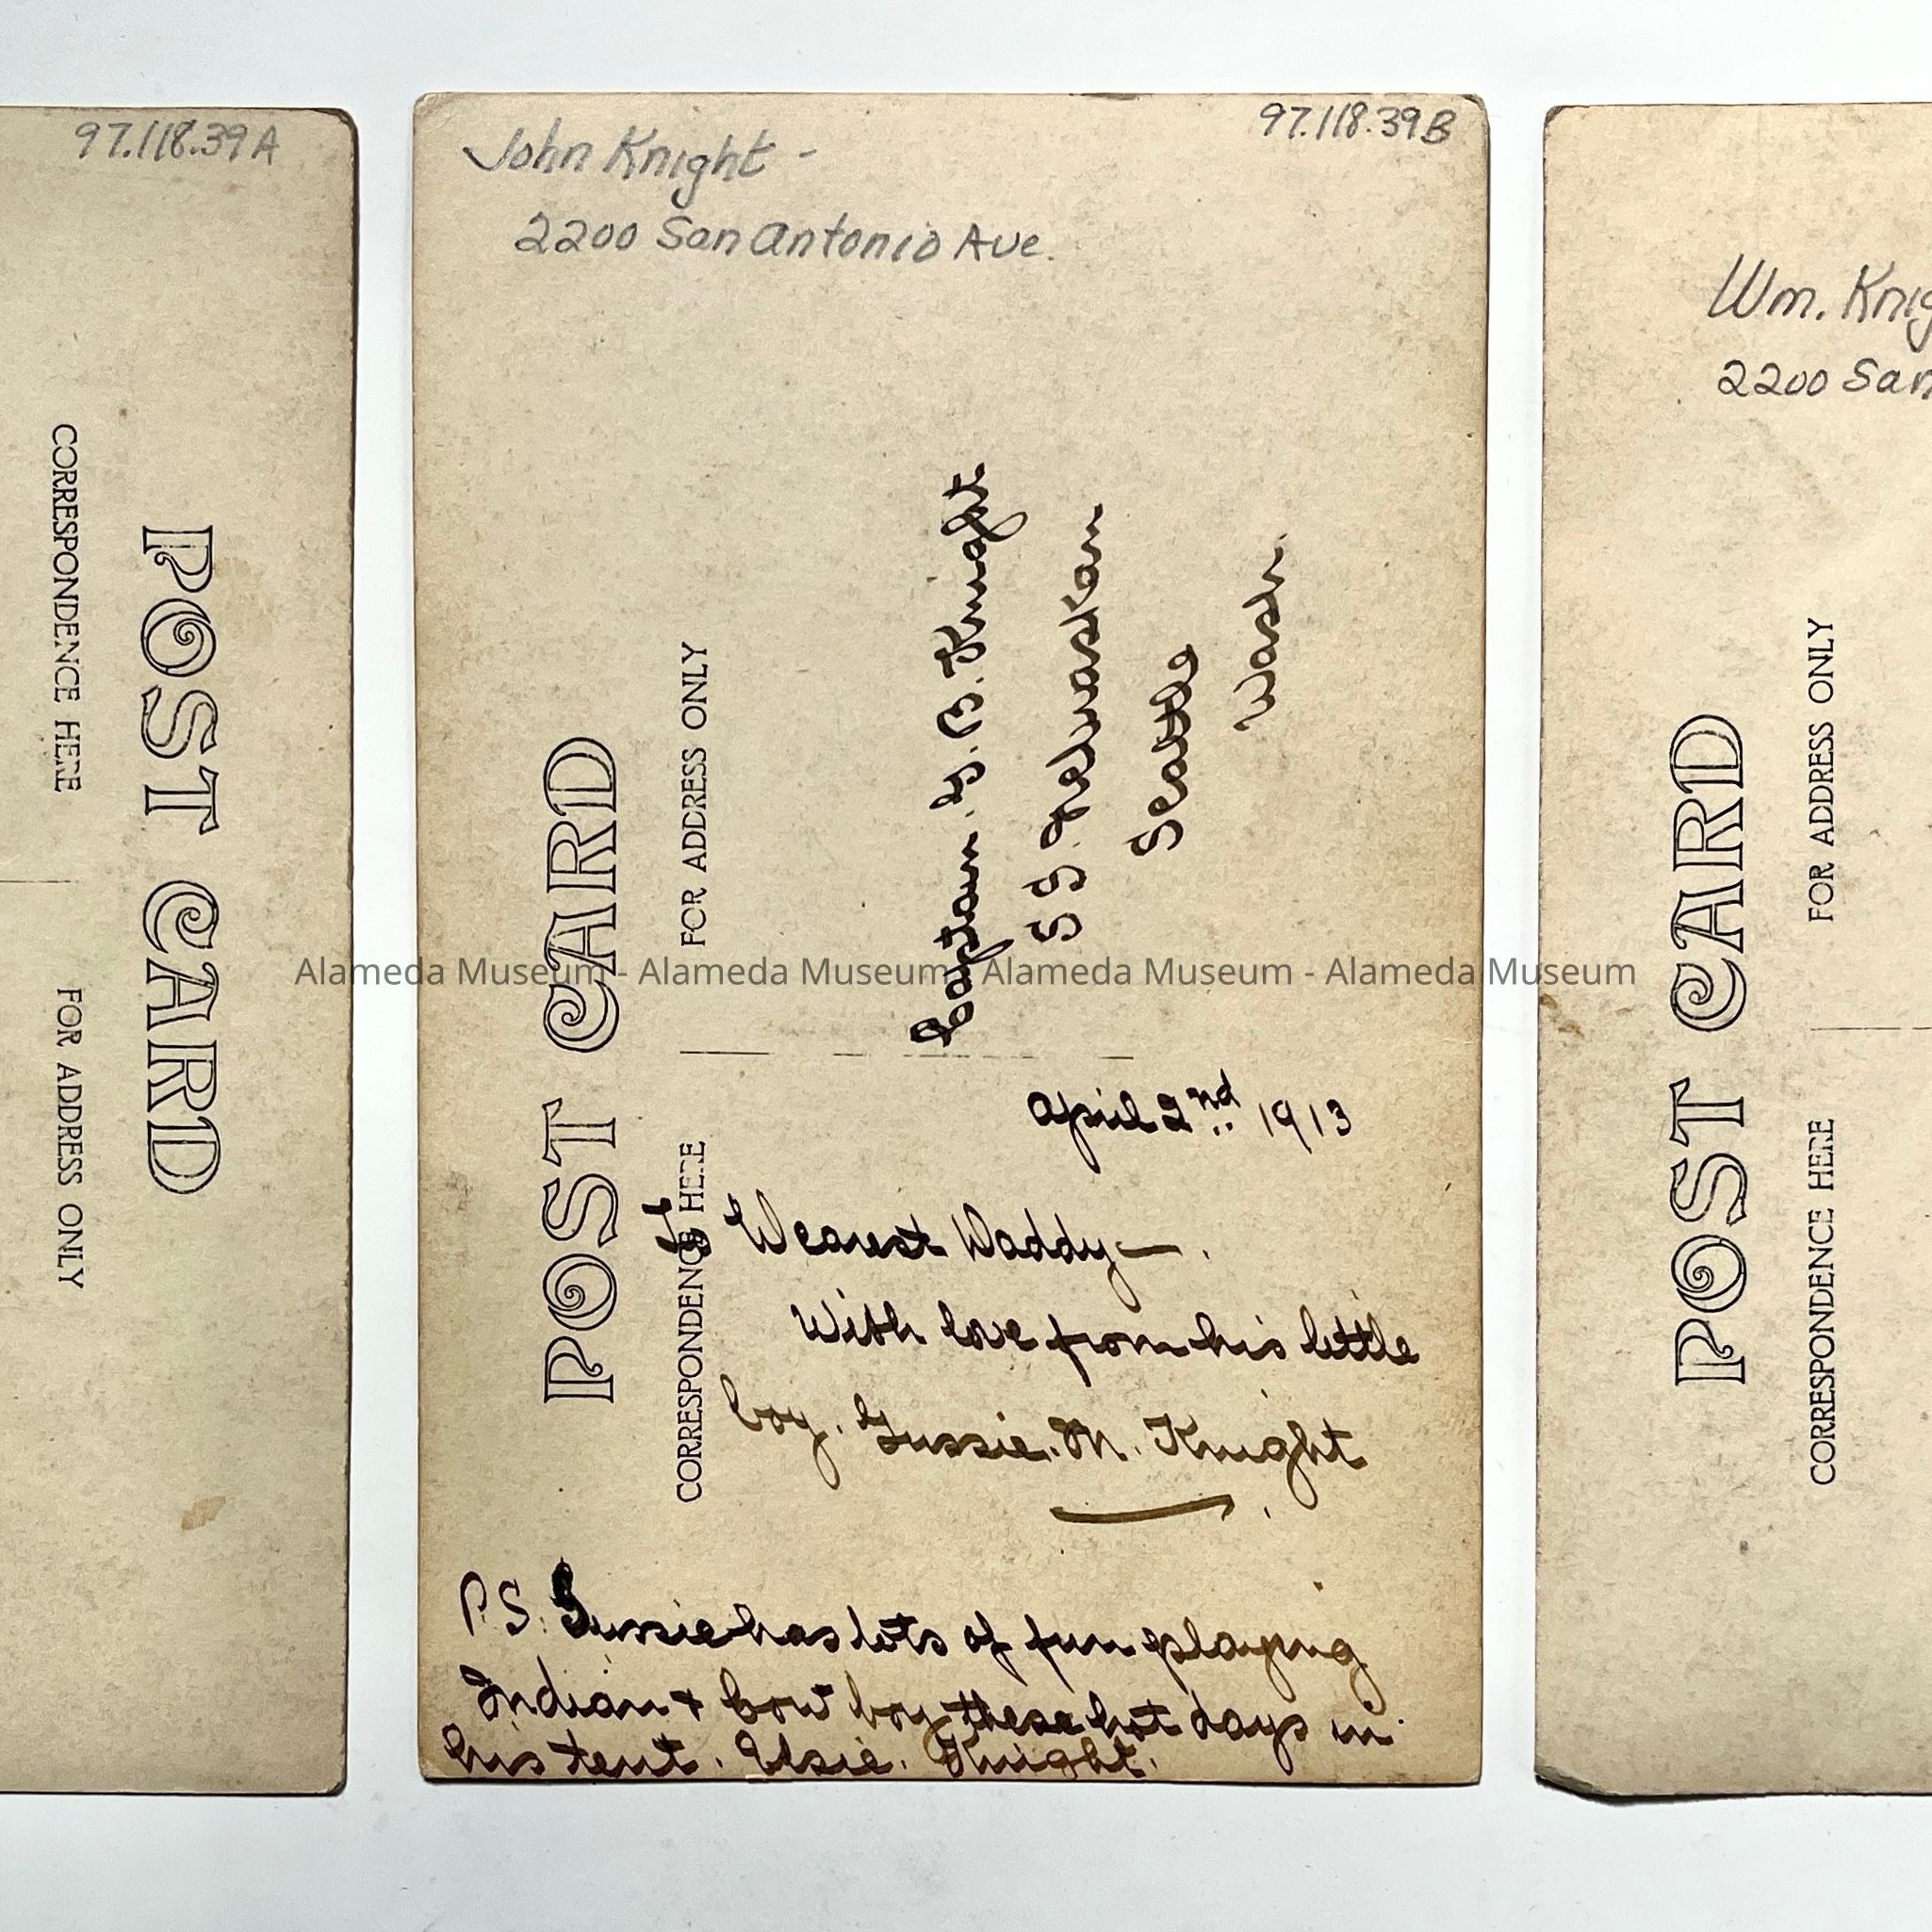 97.118.39A
CORRESPONDENCE HERE
POST CARD
FOR ADDRESS ONLY
97.118.39B
John Knight -
2200 San Antonio Ave.
POST CARD
FOR ADDRESS ONLY
CORRESPONDENCE HERE
Captain G. B. Knight
S S Nebraskan
Seattle
Wash.
April 2nd 1913
To Dearest Daddy —.
With love from his little
boy. Gussie. M. Knight
P.S. Gussie has lots of fun playing
Indian & Cow boy these hot days in
his tent. Elsie. Knight.
Wm. Knig
2200 San
POST CARD
FOR ADDRESS ONLY
CORRESPONDENCE HERE
Alameda Museum - Alameda Museum - Alameda Museum - Alameda Museum